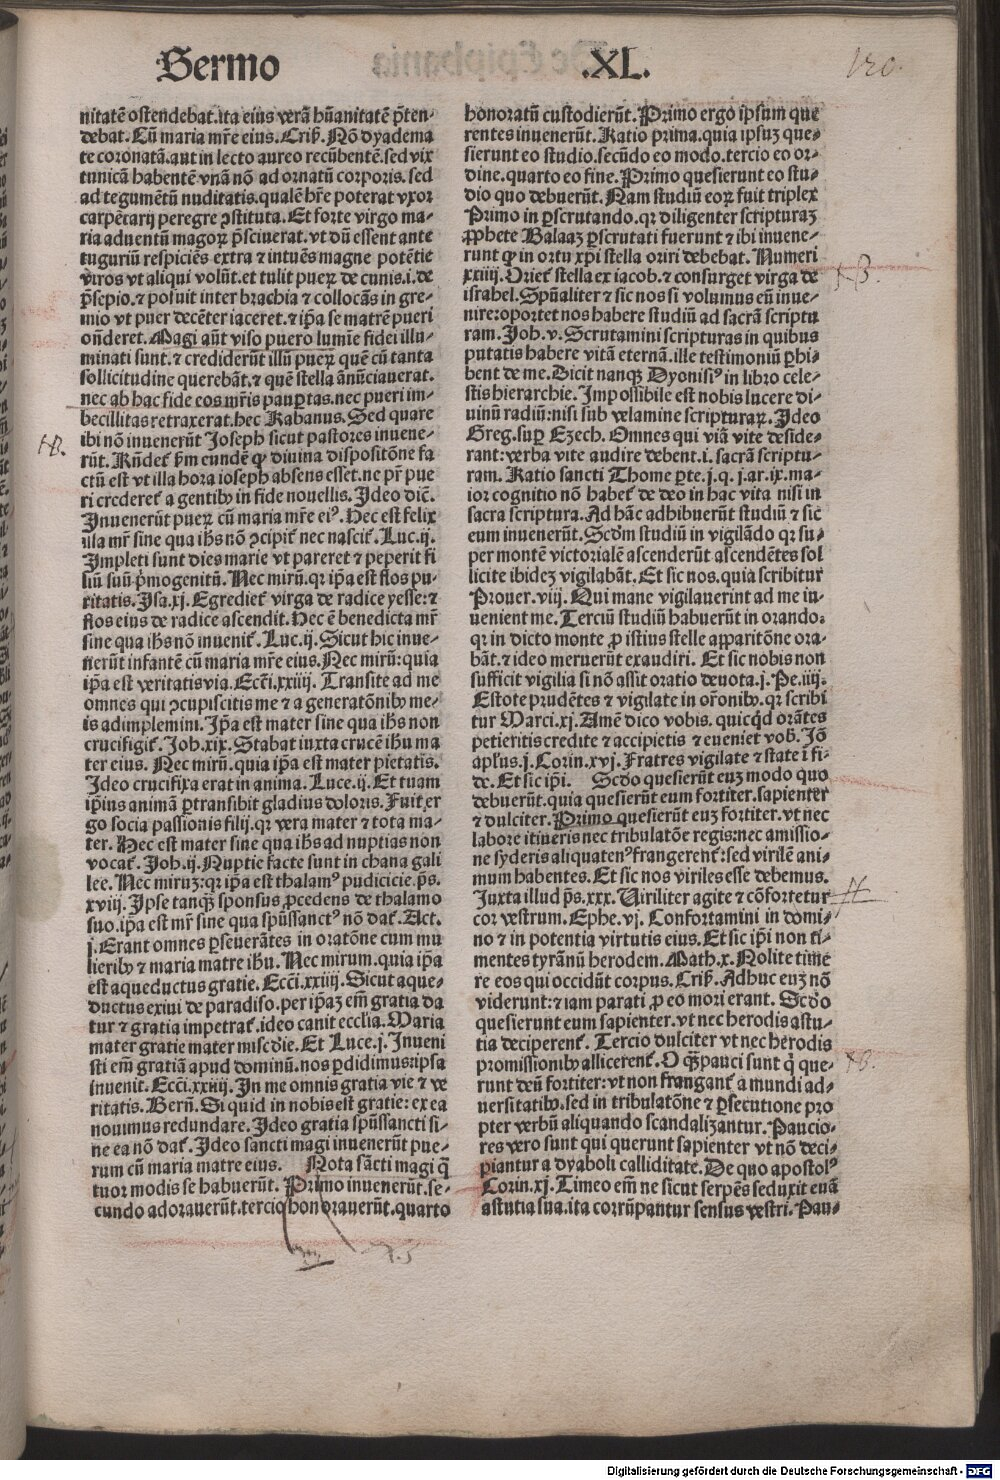 Sermo .XL.
nitatē ostendebat.ita eius verā hūanitatē p̄ten⸗
debat. Cū maria mr̄e eius. Criß. Nō dyadema
te coronatā.aut in lecto aureo recūbentē.sed vix
tunicā habentē vnā nō ad ornatū corporis. sed
ad tegumētū nuditatis.qualē hr̄e poterat vxor
carpētarij peregre ↄstituta. Et forte virgo ma⸗
ria aduentū magoꝝ p̄sciuerat.vt dū essent ante
tuguriū respiciēs extra ⁊ intuēs magne potētie
viros vt aliqui volūt.et tulit pueꝝ de cunis.i.de
p̄sepio.⁊ posuit inter brachia ⁊ collocās in gre⸗
mio vt puer decēter iaceret.⁊ ip̄a se matrē pueri
oñderet. Magi aūt viso puero lumīe fidei illu⸗
minati sunt.⁊ crediderūt illū pueꝝ quē cū tanta
sollicitudine querebāt.⁊ quē stella ānūciauerat.
nec ab hac fide eos mr̄is paup̱tas.nec pueri im⸗
becillitas retraxerat.hec Rabanus. Sed quare
ibi nō inuenerūt Joseph sicut pastores inuene⸗
rūt. Rn̄det᷑ ẜm eundē ꝙ diuina dispositōne fa
ctū est vt illa hora ioseph absens esset.ne pr̄ pue
ri crederet᷑ a gentibꝰ in fide nouellis. Ideo dic̄.
Inuenerūt pueꝝ cū maria mr̄e eiꝰ. Hec est felix
illa mr̄ sine qua ih̄s nō ↄcipit᷑ nec nascit᷑. Luc.ij.
Impleti sunt dies marie vt pareret ⁊ peperit fi
liū suū p̄mogenitū. Nec mirū.qꝛ ip̄a est flos pu⸗
ritatis. Isa.xj. Egrediet᷑ virga de radice yesse:⁊
flos eius de radice ascendit. Hec ē benedicta mr̄
sine qua ih̄s nō inuenit᷑. Luc.ij. Sicut hic inue⸗
nerūt infantē cū maria mr̄e eius. Nec mirū:quia
ip̄a est veritatis via. Ecc̄i.xxiiij. Transite ad me
omnes qui ↄcupiscitis me ⁊ a generatōnibꝰ me⸗
is adimplemini. Ip̄a est mater sine qua ih̄s non
crucifigit᷑. Joh.xix. Stabat iuxta crucē ih̄u ma
ter eius. Nec mirū.quia ip̄a est mater pietatis.
Ideo crucifixa erat in anima. Luce.ij. Et tuam
ip̄ius animā p̱transibit gladius doloris. Fuit er
go socia passionis filij.qꝛ vera mater ⁊ tota ma⸗
ter. Hec est mater sine qua ih̄s ad nuptias non
vocat᷑. Joh.ij. Nuptie facte sunt in chana gali
lee. Nec miruꝫ:qꝛ ip̄a est thalamꝰ pudicicie.p̄s.
xviij. Ipse tanqꝫ sponsus ꝓcedens de thalamo
suo.ip̄a est mr̄ sine qua spūssanctꝰ nō dat᷑. Act.
j. Erant omnes p̱seuerātes in oratōne cum mu
lieribꝰ ⁊ maria matre ih̄u. Nec mirum.quia ip̄a
est aqueductus gratie. Ecc̄i.xxiiij. Sicut aque⸗
ductus exiui de paradiso.per ip̄aꝫ em̄ gratia da
tur ⁊ gratia impetrat᷑.ideo canit ecclīa. Maria
mater gratie mater mīsc̄die. Et Luce.j. Inueni
sti em̄ gratiā apud dominū.nos p̱didimus:ipsa
inuenit. Ecc̄i.xxiiij. In me omnis gratia vie ⁊ ve
ritatis. Bern̄. Si quid in nobis est gratie: ex ea
nouimus redundare. Ideo gratia spūssancti si⸗
ne ea nō dat᷑. Ideo sancti magi inuenerūt pue⸗
rum cū maria matre eius. Nota sācti magi q̄
tuor modis se habuerūt. Primo inuenerūt.se⸗
cundo adorauerūt.tercio honorauerūt.quarto
honoratū custodierūt. Primo ergo ip̄sum que
rentes inuenerūt. Ratio prima.quia ipsuꝫ que⸗
sierunt eo studio.secūdo eo modo.tercio eo or⸗
dine.quarto eo fine. Primo quesierunt eo stu⸗
dio quo debuerūt. Nam studiū eoꝝ fuit triplex
Primo in p̱scrutando.qꝛ diligenter scripturaꝫ
ꝓphete Balaaꝫ p̱scrutati fuerunt ⁊ ibi inuene⸗
runt ꝙ in ortu xp̄i stella oriri debebat. Numeri
xxiiij. Oriet᷑ stella ex iacob.⁊ consurget virga de
israhel. Spūaliter ⁊ sic nos si volumus eū inue⸗
nire:oportet nos habere studiū ad sacrā scriptu
ram. Joh.v. Scrutamini scripturas in quibus
putatis habere vitā eternā.ille testimoniū p̱hi⸗
bent de me. Dicit nanqꝫ Dyonisiꝰ in libro cele⸗
stis hierarchie. Impossibile est nobis lucere di⸗
uinū radiū:nisi sub velamine scripturaꝝ. Ideo
Greg.sup̱ Ezech. Omnes qui viā vite deside⸗
rant:verba vite audire debent.i.sacrā scriptu⸗
ram. Ratio sancti Thome p̱te.j.q.j.ar.ix.ma⸗
ior cognitio nō habet᷑ de deo in hac vita nisi in
sacra scriptura. Ad hāc adhibuerūt studiū ⁊ sic
eum inuenerūt. Scd̄m studiū in vigilādo qꝛ su⸗
per montē victorialē ascenderūt ascendētes sol
licite ibideꝫ vigilabāt. Et sic nos.quia scribitur
Prouer.viij. Qui mane vigilauerint ad me in⸗
uenient me. Terciū studiū habuerūt in orando:
qꝛ in dicto monte ꝓ istius stelle apparitōne ora⸗
bāt.⁊ ideo meruerūt exaudiri. Et sic nobis non
sufficit vigilia si nō assit oratio deuota.j.Pe.iiij.
Estote prudētes ⁊ vigilate in or̄onibꝰ.qꝛ scribi
tur Marci.xj. Amē dico vobis. quicq̇d orātes
petieritis credite ⁊ accipietis ⁊ eueniet vob̄. Iō
ap̄lus.j.Corin.xvj. Fratres vigilate ⁊ state ī fi⸗
de. Et sic ip̄i. Scd̄o quesierūt euꝫ modo quo
debuerūt.quia quesierūt eum fortiter.sapienter
⁊ dulciter. Primo quesierūt euꝫ fortiter.vt nec
labore itineris nec tribulatōe regis:nec amissio⸗
ne syderis aliquatenꝰ frangerent᷑:sed virilē ani⸗
mum habentes. Et sic nos viriles esse debemus.
Juxta illud p̄s.xxx. Viriliter agite ⁊ cōfortetur
cor vestrum. Ephe.vj. Confortamini in domi⸗
no ⁊ in potentia virtutis eius. Et sic ip̄i non ti⸗
mentes tyrānū herodem. Math.x. Nolite time
re eos qui occidūt corpus. Criß. Adhuc euꝫ nō
viderunt:⁊ iam parati ꝓ eo mori erant. Scd̄o
quesierunt eum sapienter.vt nec herodis astu⸗
tia deciperent᷑. Tercio dulciter vt nec herodis
promissionibꝰ allicerent᷑. O qꝫ̄ pauci sunt q̇ que⸗
runt deū fortiter:vt non frangant᷑ a mundi ad⸗
uersitatibꝰ.sed in tribulatōne ⁊ p̱secutione pro
pter verbū aliquando scandalizantur. Paucio⸗
res vero sunt qui querunt sapienter vt nō deci⸗
piantur a dyaboli calliditate. De quo apostolꝰ
Corin.xj. Timeo em̄ ne sicut serpēs seduxit euā
astutia sua.ita corrūpantur sensus vestri. Pau⸗
Digitalisierung gefördert durch die Deutsche Forschungsgemeinschaft - DFG